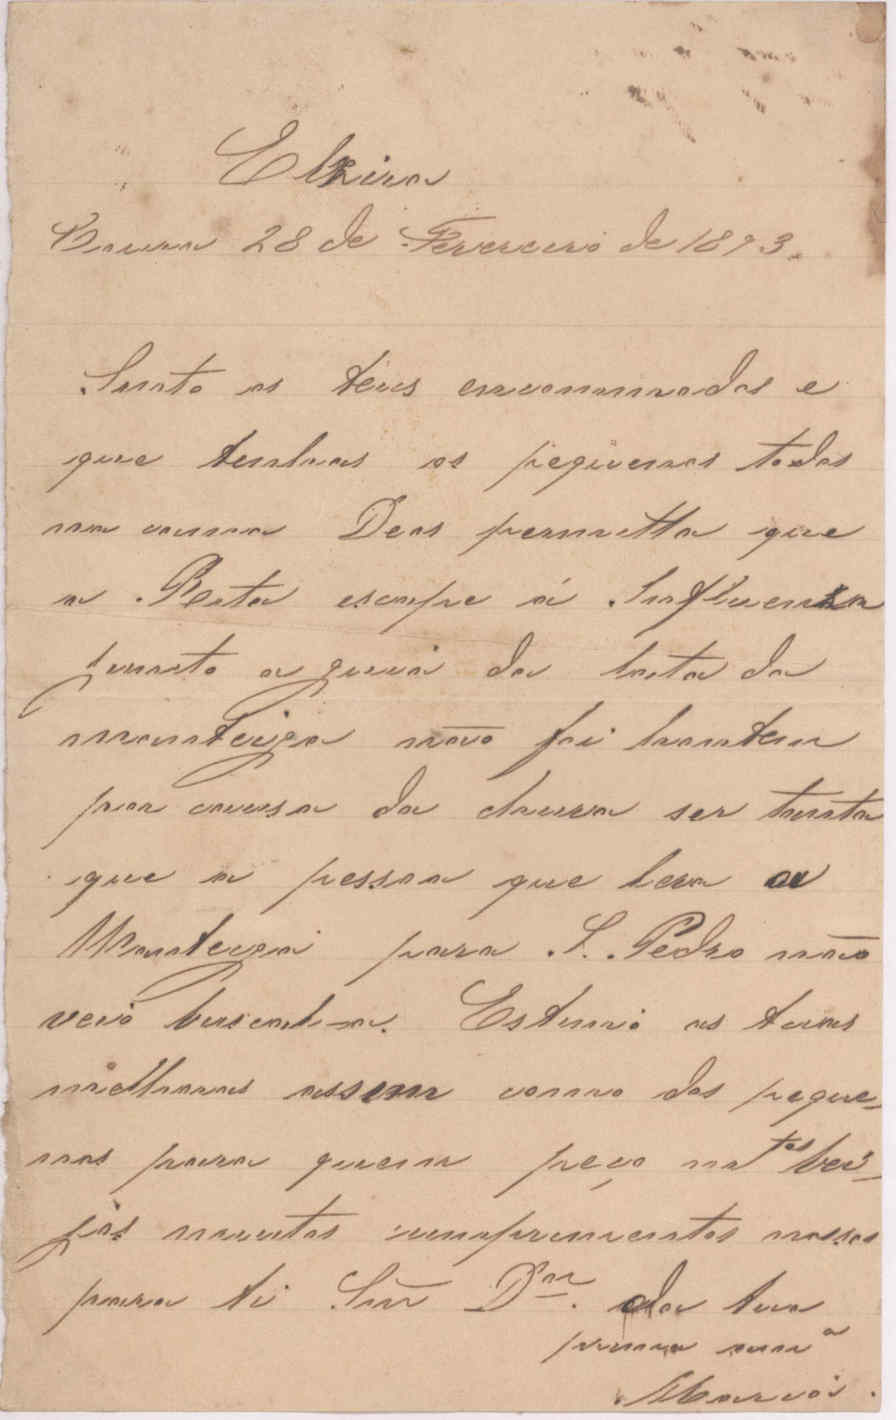 Elzira
28 de Fevereiro de 1893.
Sinto os teus encommodos e
que tenhas os pequenos todos
na cama Deos permitta que
a Beta escape á Influenza
junto a guia da lata da
manteiga não foi hontem
por causa da chuva ser tanta
que a pessoa que leva a
Manteiga para S. Pedro não
veio buscal-a. Estimo as tuas
melhoras assim como dos peque-
nos para quem peço m.tos bei-
jos muitos cumprimentos nossos
para ti Snr Dor. da tua
prima am.a
Maria.